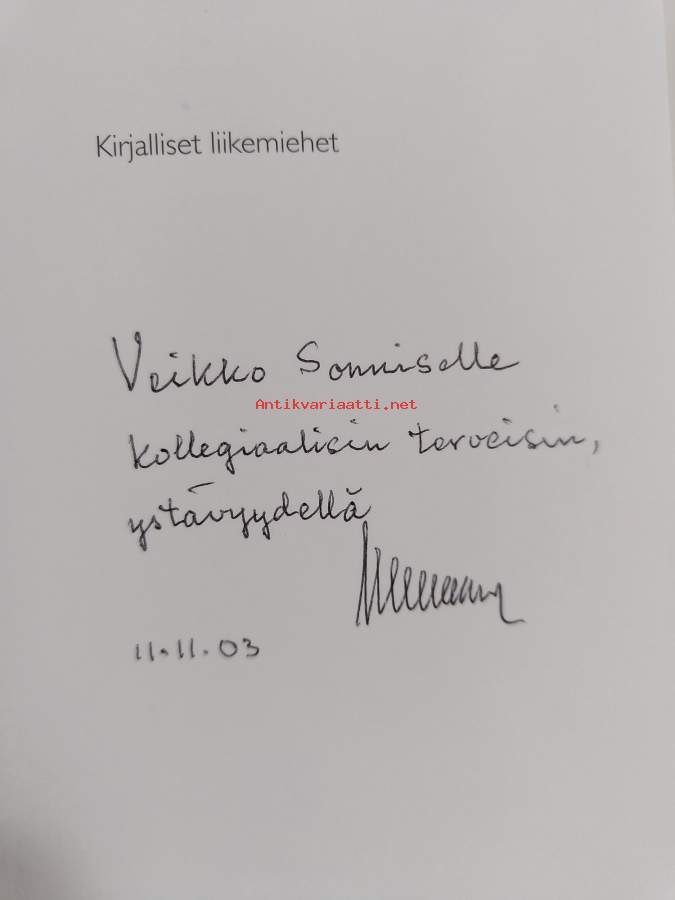 Kirjalliset liikemiehet
Veikko Sonniselle
Antikvariaatti.net
kollegiaalisin terveisin,
ystävyydellä
11.11.03